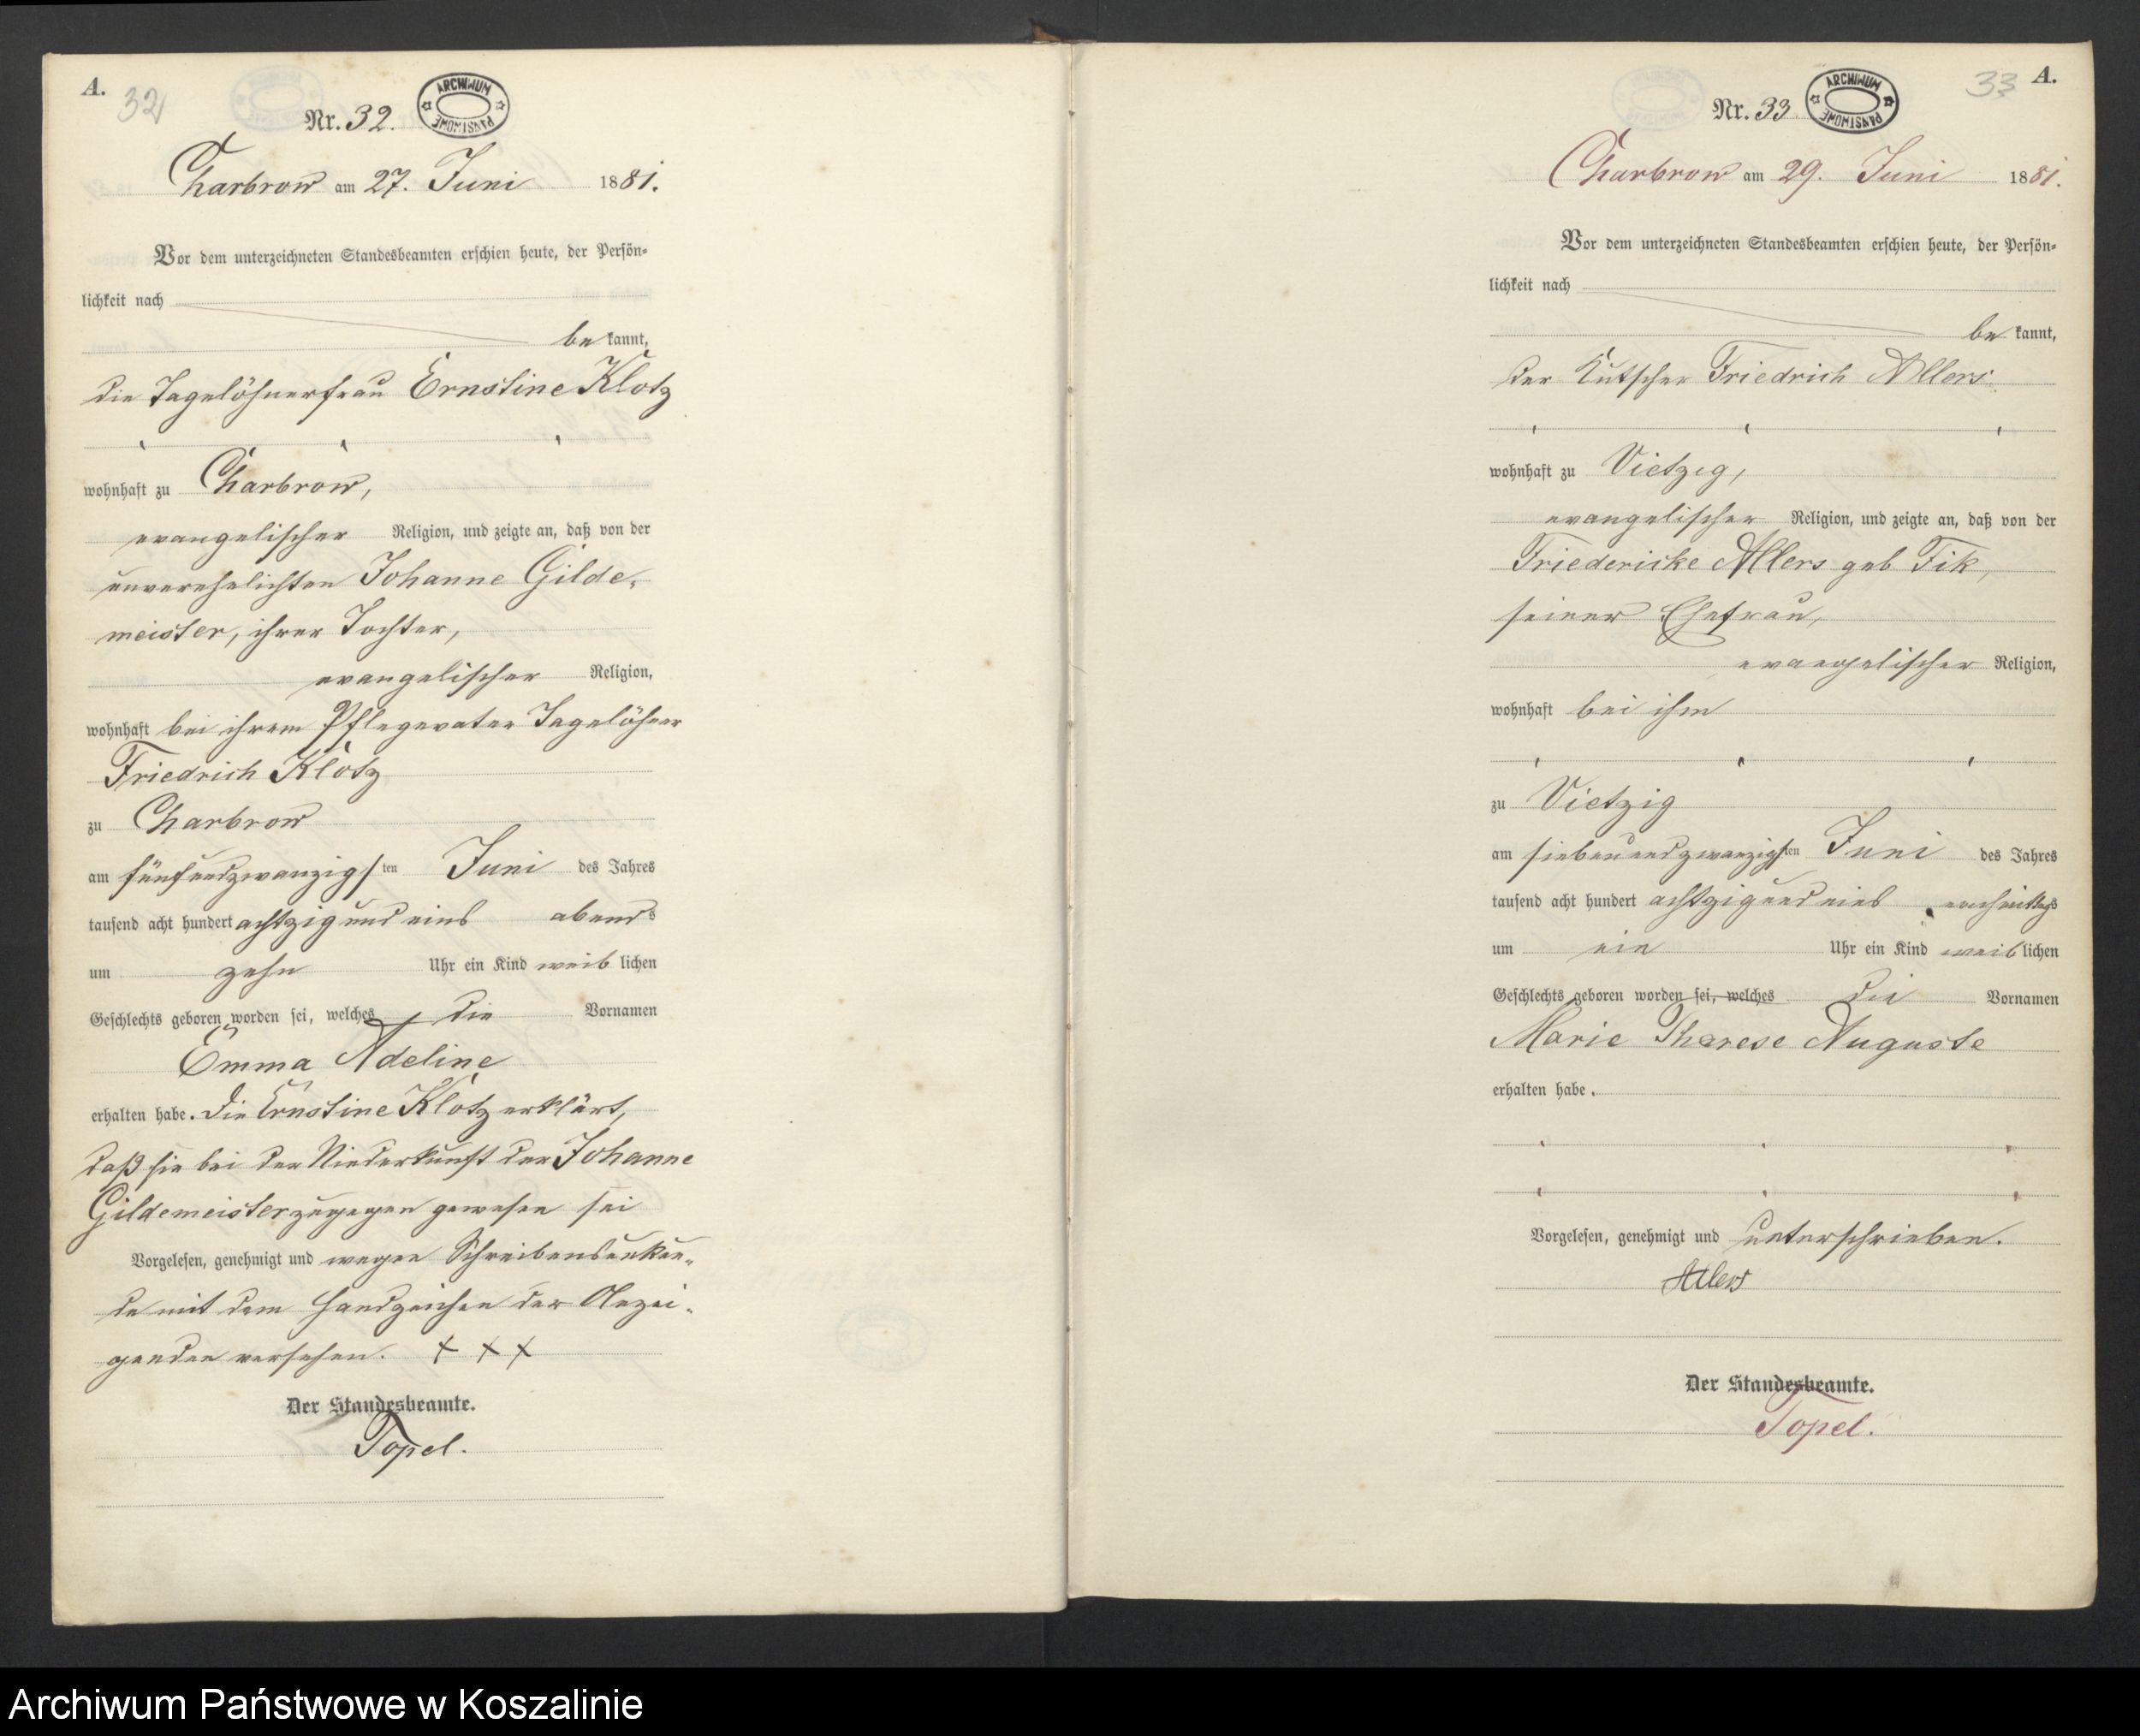 A.
32
Nr. 32.
ARCHIWUM PAŃSTWOWE
Charbrow am 27. Juni 1881.
Vor dem unterzeichneten Standesbeamten erschien heute, der Persön-
lichkeit nach
bekannt,
die Tagelöhnerfrau Ernstine Klotz
wohnhaft zu Charbrow,
evangelischer Religion, und zeigte an, daß von der
unverehelichten Johanne Gilde-
meister, ihrer Tochter,
evangelischer Religion,
wohnhaft bei ihrem Pflegevater Tagelöhner
Friedrich Klotz
zu Charbrow
am fünfundzwanzigsten Juni des Jahres
tausend acht hundert achtzig und eins abends
um zehn Uhr ein Kind weiblichen
Geschlechts geboren worden sei, welches die Vornamen
Emma Adeline
erhalten habe. Die Ernstine Klotz erklärt,
daß sie bei der Niederkunft der Johanne
Gildemeister zugegen gewesen sei
Vorgelesen, genehmigt und wegen Schreibensunkun-
de mit dem Handzeichen der Anzei-
genden versehen. + + +
Der Standesbeamte.
Topel.
33 A.
Nr. 33.
ARCHIWUM PAŃSTWOWE
Charbrow am 29. Juni 1881.
Vor dem unterzeichneten Standesbeamten erschien heute, der Persön-
lichkeit nach
bekannt,
der Kutscher Friedrich Allers
wohnhaft zu Vietzig,
evangelischer Religion, und zeigte an, daß von der
Friedericke Allers geb Fik,
seiner Ehefrau,
evangelischer Religion,
wohnhaft bei ihm
zu Vietzig
am siebenundzwanzigsten Juni des Jahres
tausend acht hundert achtzig und eins nachmittags
um ein Uhr ein Kind weiblichen
Geschlechts geboren worden sei, welches die Vornamen
Marie Therese Auguste
erhalten habe.
Vorgelesen, genehmigt und unterschrieben.
Allers
Der Standesbeamte.
Topel.
Archiwum Państwowe w Koszalinie